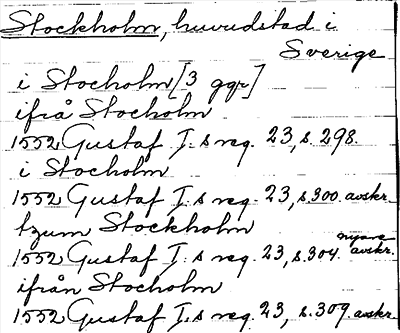 Stockholm, huvudstad i
Sverige
i Stocholm [3 ggr]
ifrå Stocholm
1552 Gustaf I:s reg. 23, s. 298.
i Stocholm
1552 Gustaf I:s reg. 23, s. 300. avskr.
tzum Stockholm
1552 Gustaf I:s reg. 23, s. 304. nyare avskr.
ifrån Stocholm
1552 Gustaf I:s reg. 23, s. 309. avskr.